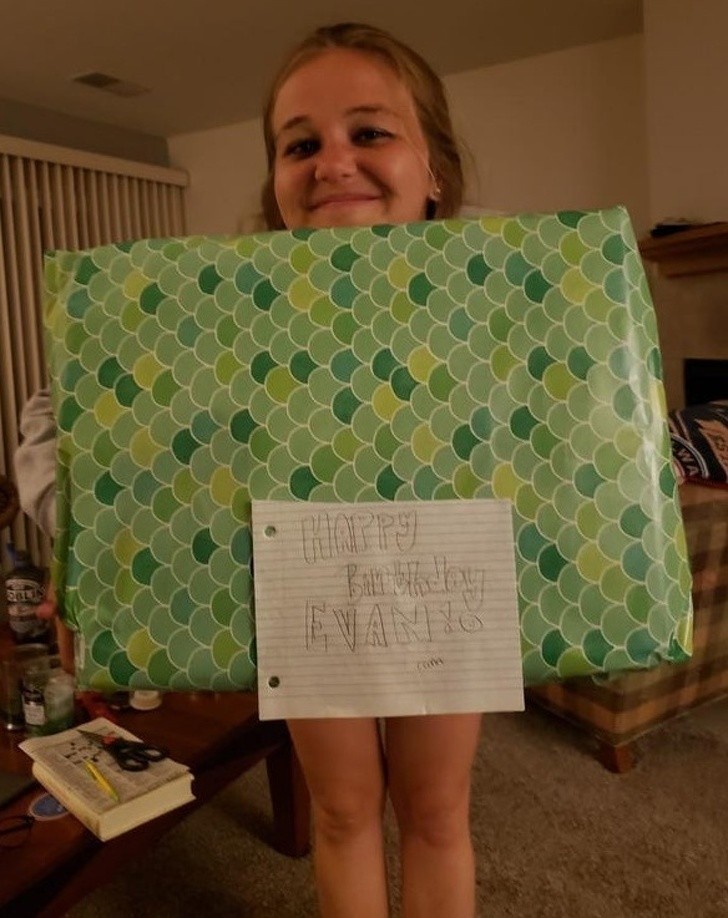 HAPPY
Birthday
EVAN!